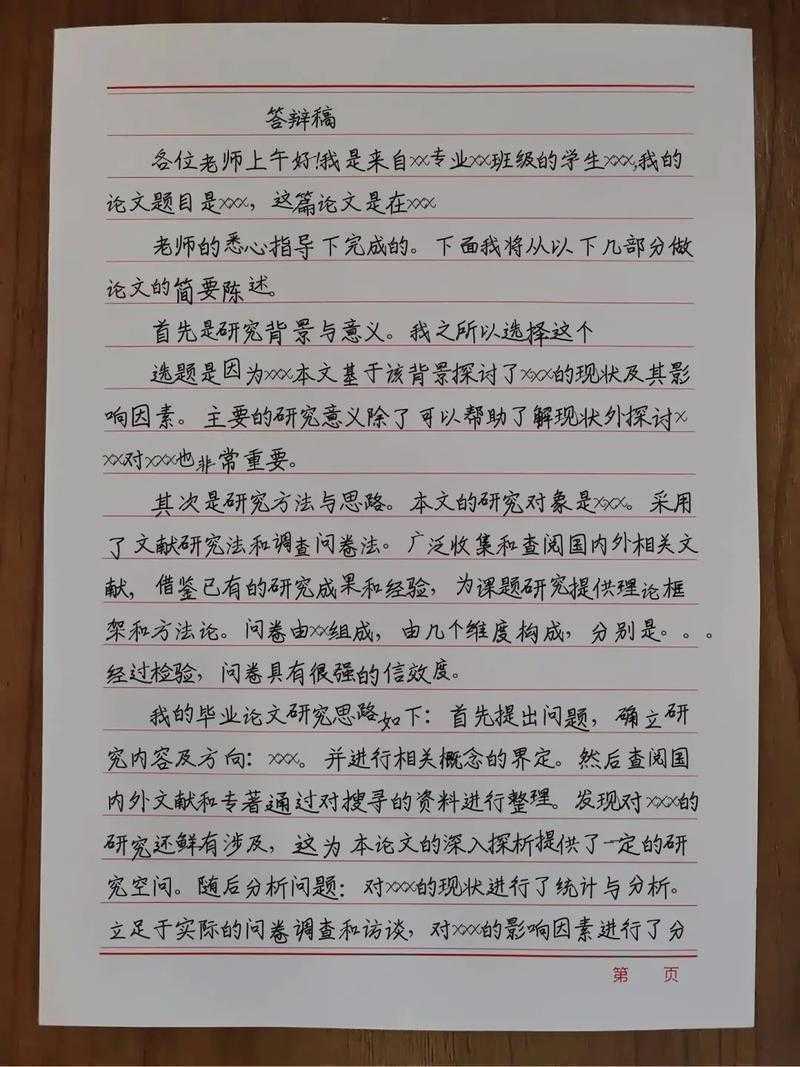 答辩稿
各位老师上午好!我是来自xx专业xx班级的学生xxx,我的
论文题目是xxx，这篇论文是在xxx
老师的悉心指导下完成的。下面我将从以下几部分做
论文的简要陈述。
首先是研究背景与意义。我之所以选择这个
选题是因为xxx.本文基于该背景探讨了xxx的现状及其影
响因素。主要的研究意义除了可以帮助了解现状外探讨x
xx对xxx也非常重要。
其次是研究方法与思路。本文的研究对象是xxx。采用
了文献研究法和调查问卷法。广泛收集和查阅国内外相关文
献，借鉴已有的研究成果和经验，为课题研究提供理论框
架和方法论。问卷由xx组成，由几个维度构成，分别是。。。
经过检验，问卷具有很强的信效度。
我的毕业论文研究思路如下：首先提出问题，确立研
究内容及方向：xxx。并进行相关概念的界定。然后查阅国
内外文献和专著通过对搜寻的资料进行整理。发现对xxx的
研究还鲜有涉及，这为本论文的深入探析提供了一定的研
究空间。随后分析问题：对xxx的现状进行了统计与分析。
立足于实际的问卷调查和访谈，对xxx的影响因素进行了分
第 页